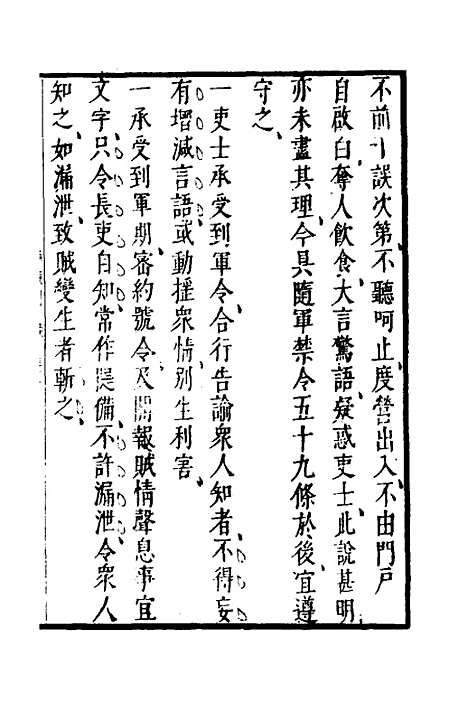 不前十誤次第不聽呵止度營出入不由門戶
自啟白奪人飲食大言驚語疑惑吏士此說甚明
亦未盡其理今具隨軍禁令五十九條於後宜遵
守之
一吏士承受到軍令合行告諭眾人知者不得妄
有增減言語或動搖眾情別生利害
一承受到軍期審約號令及關報賊情聲息事宜
文字只令長吏自知常作隄備不許漏泄令眾人
知之如漏泄致賊變生者斬之